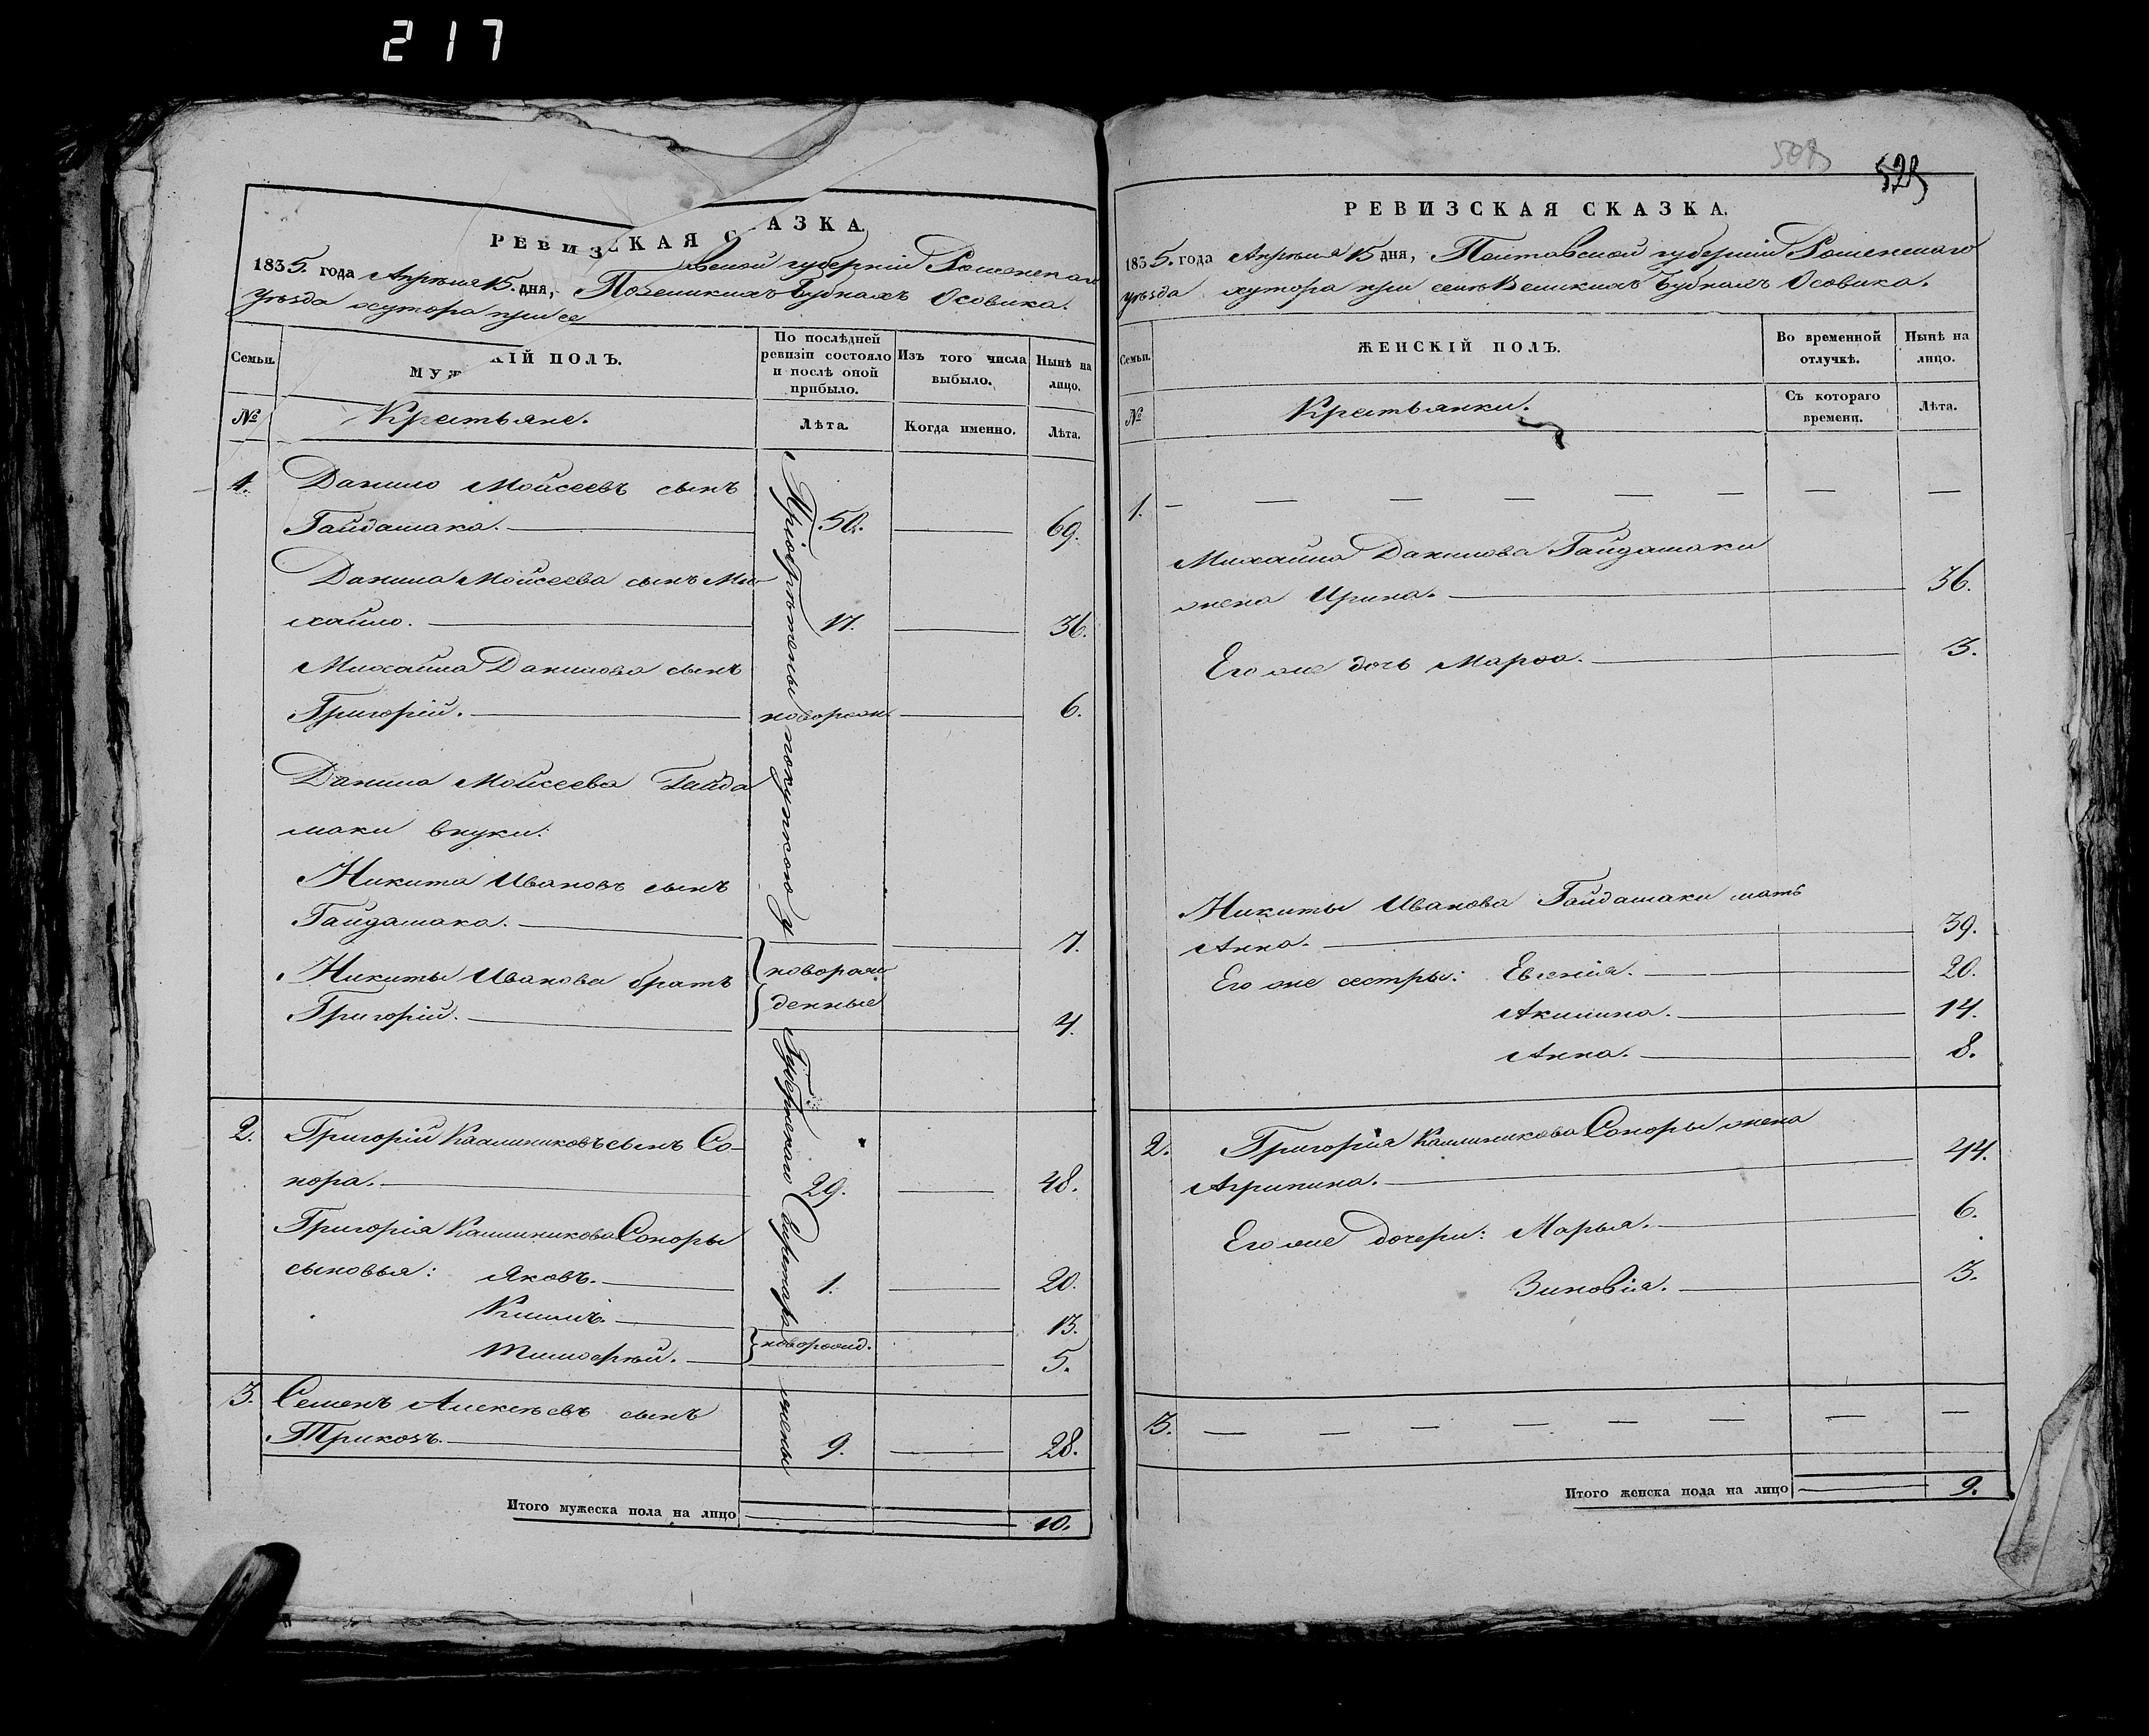 217
РЕВИЗСКАЯ С АЗКА.
1835. года Апрѣля 15. дня, По вской губерніи Роменскаг
уѣзда хутора при се Великихъ Будкахъ Осовика.
Семьи.
МУЖ КІЙ ПОЛЪ.
По послѣдней ревизіи состояло и послѣ оной прибыло.
Изъ того числа выбыло.
Нынѣ на лицо.
№
Крестьяне.
Лѣта.
Когда именно.
Лѣта.
1.
Данило Мойсеевъ сынъ
Гайдамака. 50. 69.
Данила Мойсеева сынъ Ми
хайло. 17. 36.
Михайла Данилова сынъ
Григорій. новорожд 6.
Данила Мойсеева Гайда
маки внуки:
Никита Ивановъ сынъ
Гайдамака. 7.
Никиты Иванова братъ новорож
денные
Григорій. 4.
Пріобрѣтены покупкою у Губернскаго Секретаря жены
2. Григорій Калинниковъ сынъ Со-
пора. 29. 48.
Григорія Калинникова Сопоры
сыновья: Яковъ. 1. 20.
Климъ. 13.
новорожд.
Тимофѣй. 5.
3. Семенъ Алексѣевъ сынъ
Трикозъ. 9. 28.
Итого мужеска пола на лицо 10.
508
528
РЕВИЗСКАЯ СКАЗКА.
1835. года Апрѣля 15 дня, Полтавской губерніи Роменскаго
уѣзда хутора при селѣ Великихъ Будкахъ Осовика.
Семьи.
ЖЕНСКІЙ ПОЛЪ.
Во временной отлучкѣ.
Нынѣ на лицо.
№
Крестьянки.
Съ котораго времени.
Лѣта.
1.
Михайла Данилова Гайдамаки
жена Ирина. 36.
Его же дочь Марфа. 3.
Никиты Иванова Гайдамаки мать
Анна. 39.
Его же сестры: Евгенія. 20.
Акилина. 14.
Анна. 8.
2. Григорія Калинникова Сопоры жена
Агрипина. 44.
Его же дочери: Марья. 6.
Зиновія. 3.
3.
Итого женска пола на лицо 9.